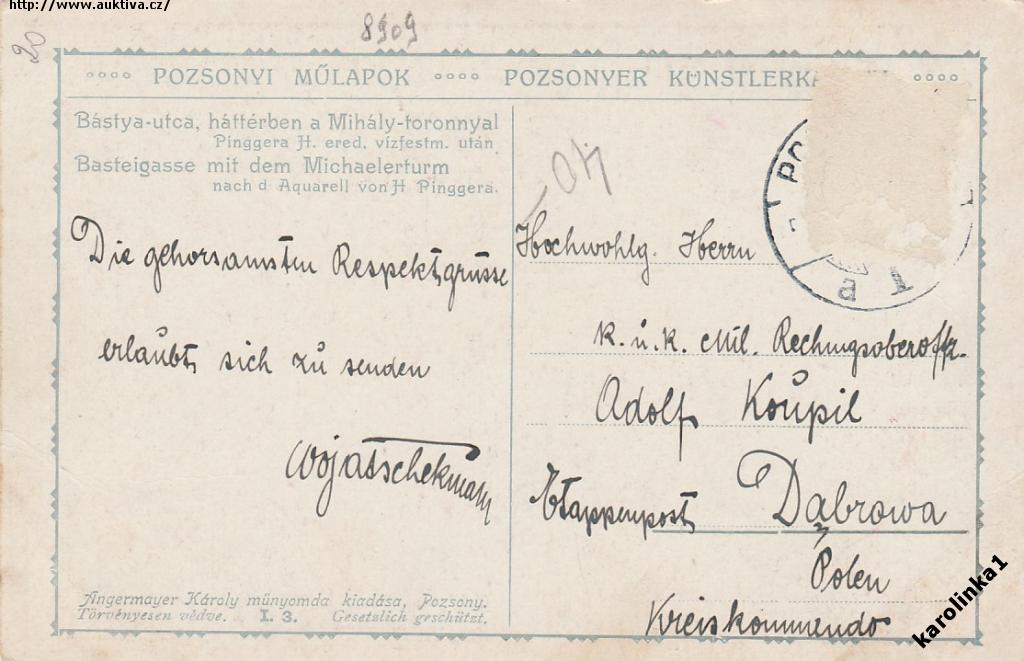 http://www.auktiva.cz/
8909
20
POZSONYI MŰLAPOK POZSONYER KÜNSTLERKA
Bástya-utca, háttérben a Mihály-toronnyal
Pinggera H. ered. vízfestm. után
Basteigasse mit dem Michaelerturm
nach d Aquarell von H Pinggera.
Die gehorsamsten Respektsgrüsse
erlaubt sich zu senden
Hochwohlg. Herrn
k. u. k. Mil. Rechnungsoberoffz.
Adolf Koupil
Etappenpost Dąbrowa
Polen
Kreiskommendo
Angermayer Károly műnyomda kiadása, Pozsony.
Törvényesen védve. I. 3. Gesetzlich geschützt.
karolinka1